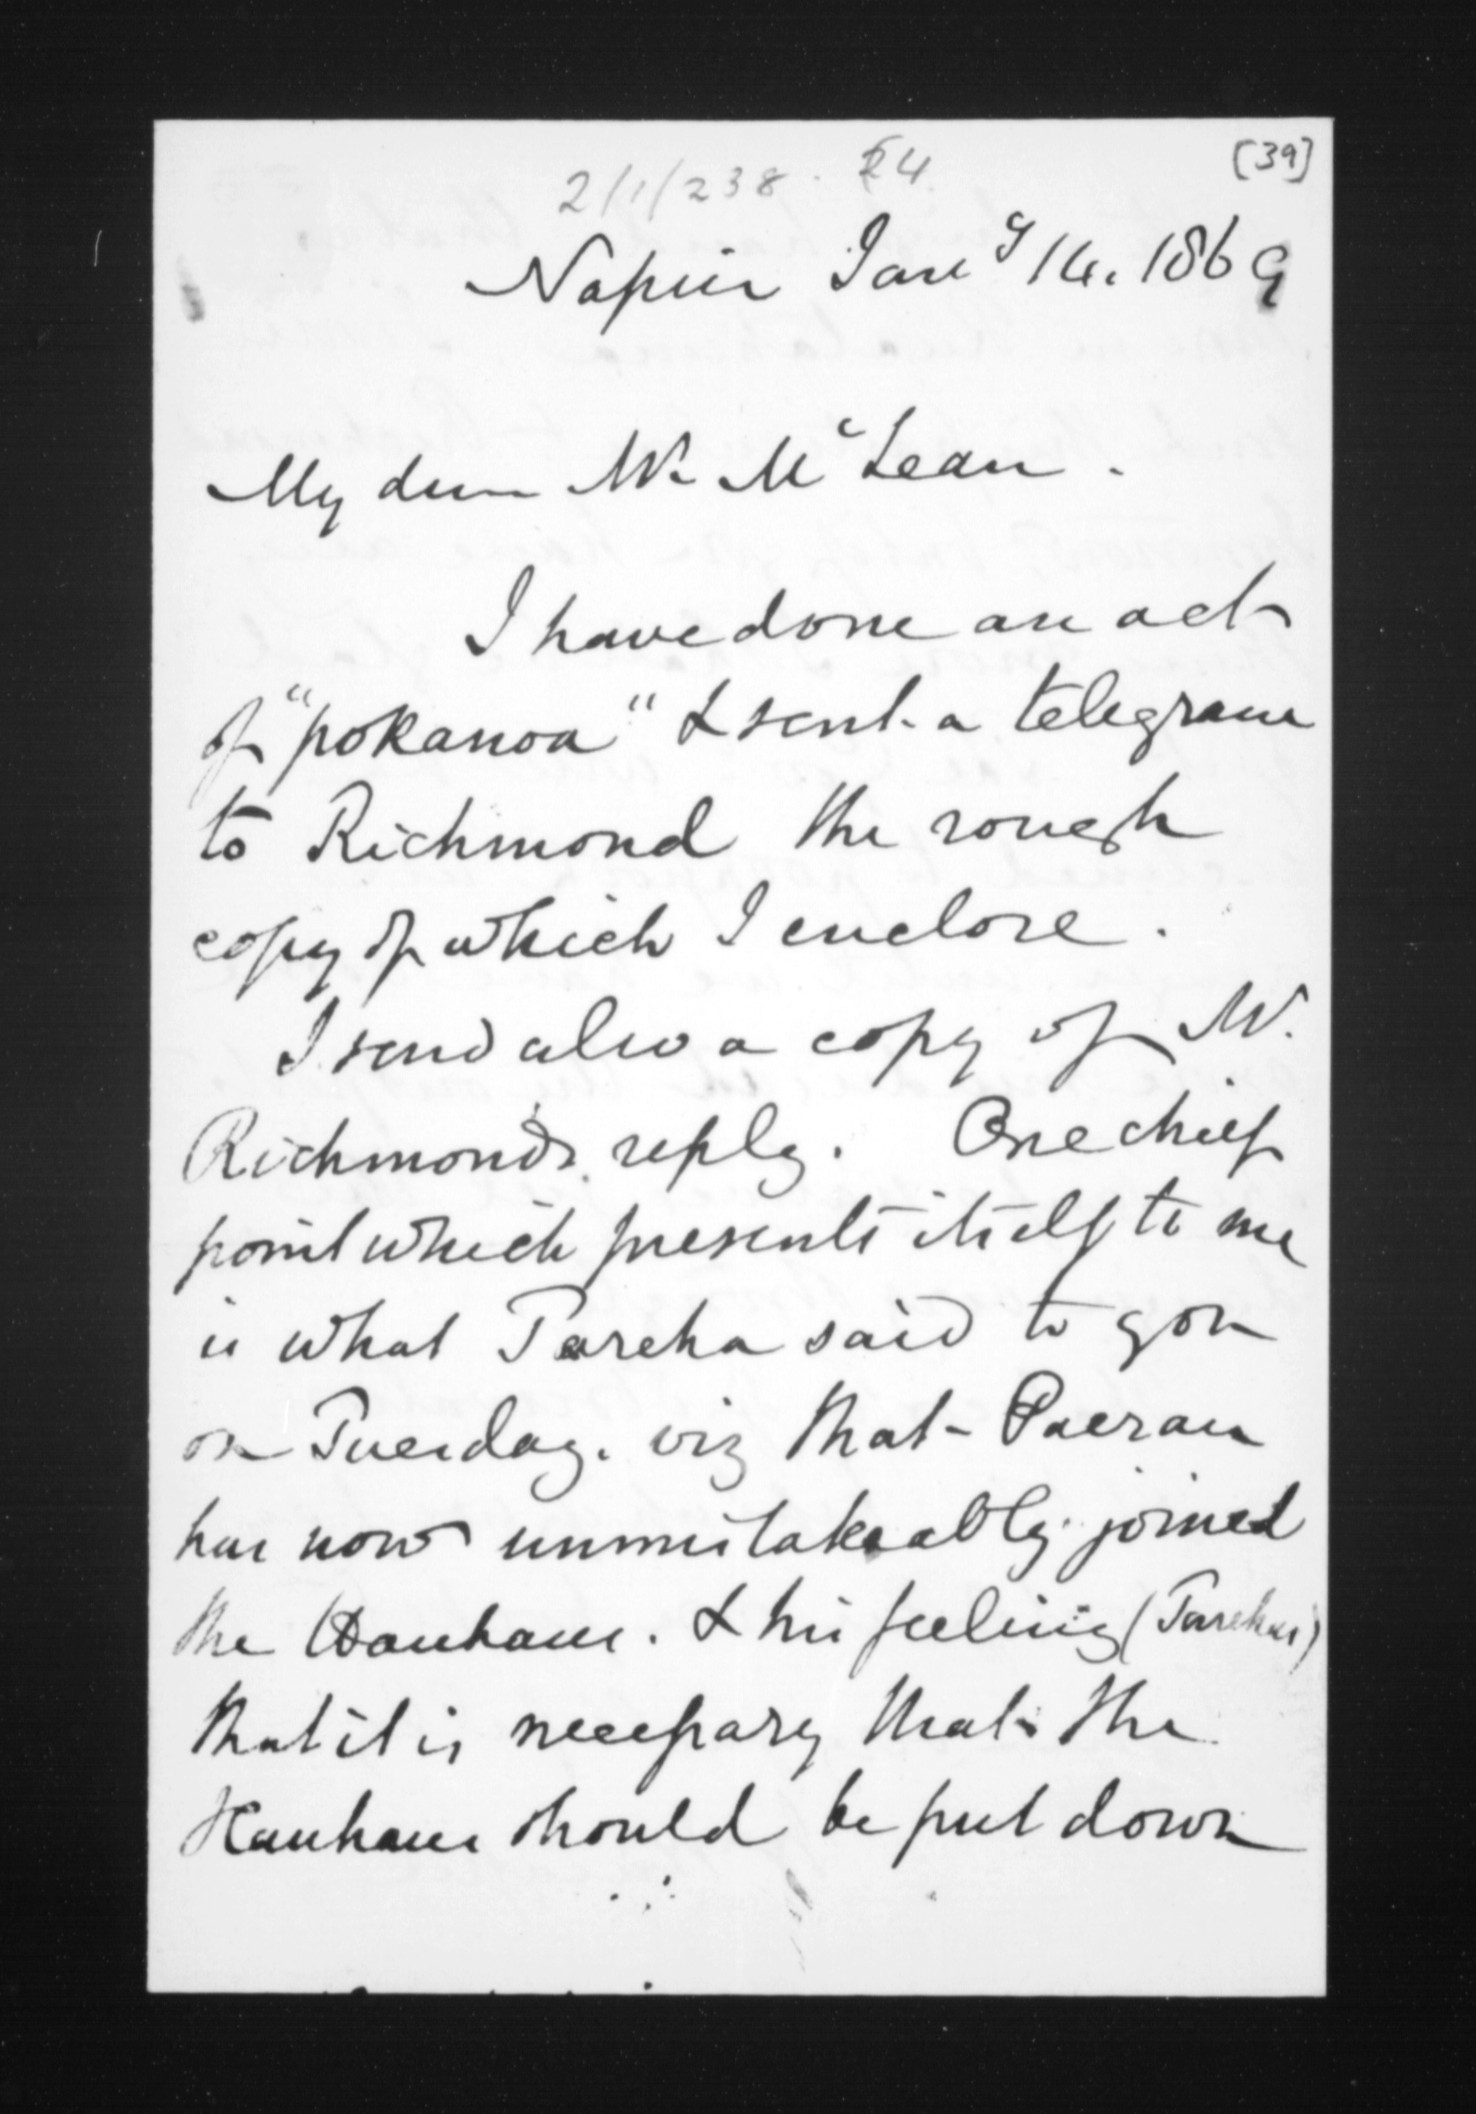 [39]
2/1/238. 24
Napier Jany 14. 1869
My dear Mr McLean.
I have done an act
of "pokanoa" & sent a telegram
to Richmond the rough
copy of which I enclose.
I send also a copy of Mr.
Richmonds reply. One chief
point which presents itself to me
is what Tareha said to you
on Tuesday. viz that Paerau
has now unmistakeably joined
the Hauhaus. & his feeling (Tarehas)
that it is necessary that the
Hauhaus should be put down